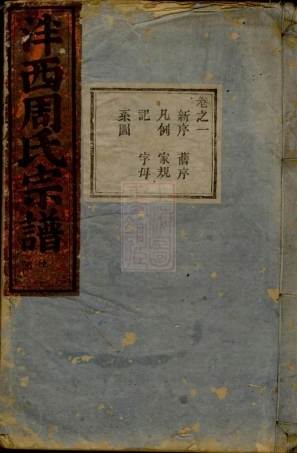 卷之一
新序 舊序
凡例 家規
記 字母
系圖
沣西周氏宗譜